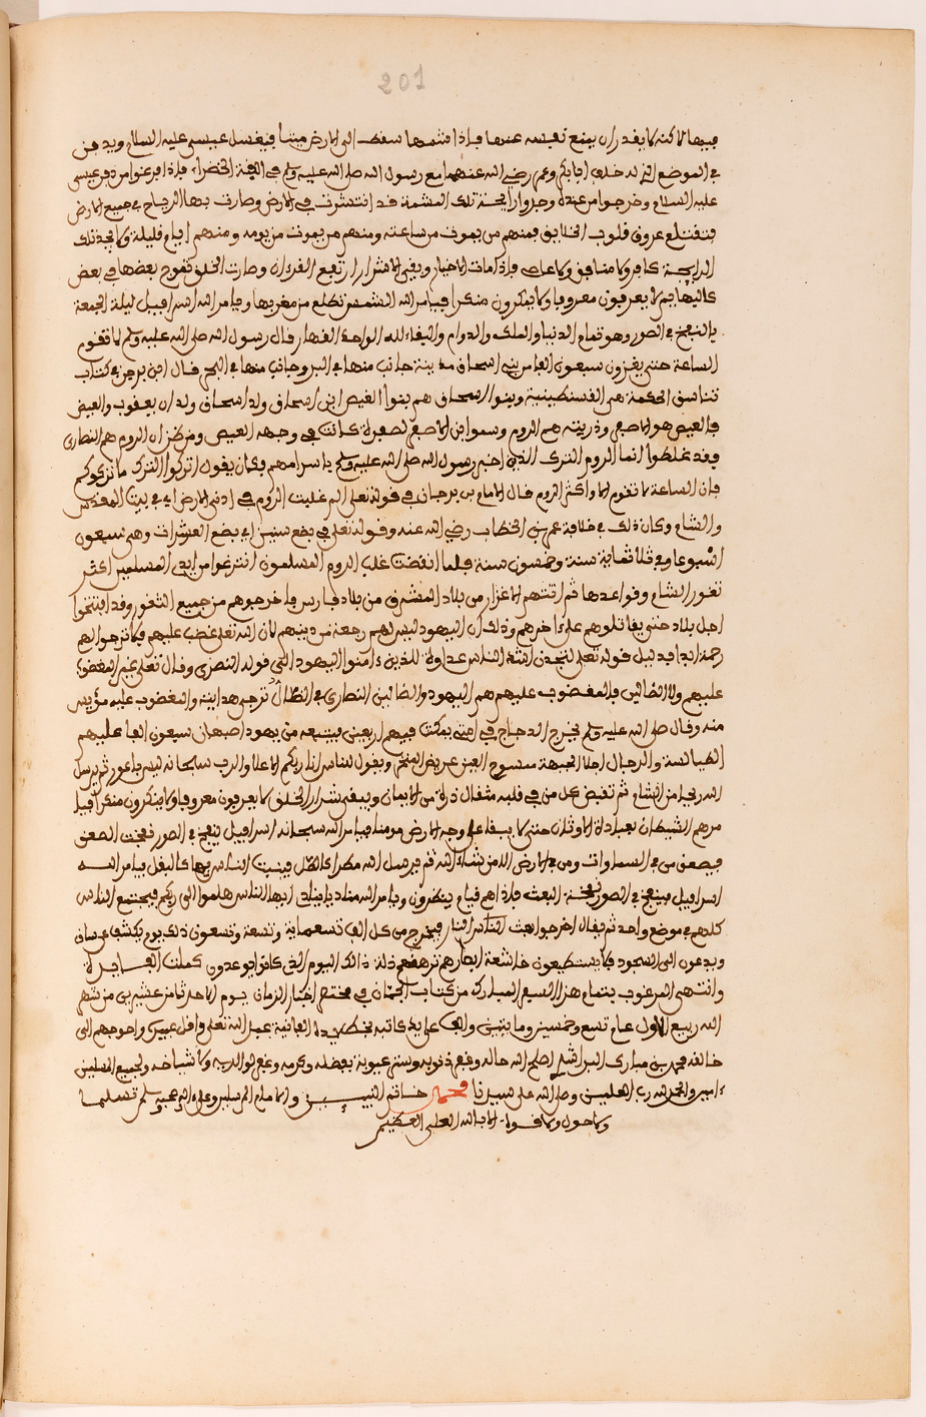 201
فيها لاكنه لا يقدر ان يمنع نفسه عنها فإذا شمها سقط الى الارض ميتا فيغسل عيسى عليه السلام ويدفن
في الموضع الذي ابا بكر وعمر رضي الله عنهما مع رسول الله صلى الله عليه وسلم في القبة الخضراء فإذا فرغوا من دفن عيسى
عليه السلام وخرجوا من عنده وجدوا رايحة تلك المشمة قد انتشرت في الارض وصارت بها الرياح في جميع الارض
فتقتلع عروق قلوب الخلايق فمنهم من يموت من ساعته ومنهم من يموت من يومه ومنهم ايام قليلة ولا يجد تلك
الرايحة كافر ولا منافق ولا عاص فإذا مات الاخيار وبقي الاشرار ارتفع القرءان وصارت الخلق تموج بعضها في بعض
كالبهايم لا يعرفون معروفا ولا ينكرون منكرا فيامر الله الشمس تطلع من مغربها ويامر الله اسرافيل ليلة الجمعة
بالنفخ في الصور وهو تمام الدنيا والملك والدوام والبقاء لله الواحد القهار قال رسول الله صلى الله عليه وسلم لا تقوم
الساعة حتى يغزون سبعون الفا من بني اسحاق مدينة جانب منها في البر وجانب منها في البحر قال ابن برجن في كتاب
تناسق الحكمة هي القسنطينية وبنوا اسحاق هم بنوا العيص ابن اسحاق ولد اسحاق ولدان يعقوب والعيص
فالعيص هو الاصفر وذريته هم الروم وسموا بني الاصفر لصفرة كانت في وجهه العيص ومن ظن ان الروم هم النصارى
فقد غلطوا انما الروم الترك الذي اخبر رسول الله صلى الله عليه وسلم باسرامهم فكان يقول اتركوا الترك ما تركوكم
فان الساعة لا تقوم الا واكثر الروم قال الامام بن برجان في قوله تعلى الم غلبت الروم في ادنى الارض اي في بيت المقدس
والشام وكان ذلك في خلافة عمر بن الخطاب رضي الله عنه وقوله تعلى في بضع سنين اي بضع العشرات وهي سبعون
اسبوعا وفي ثلاثماية سنة وخمسون سنة فلما انقضت غلب الروم المسلمون انتزعوا من ايدي المسلمين اكثر
ثغور الشام وقواعدها ثم اتتهم الاغزار من بلاد المشرق من بلاد فارس فاخرجوهم من جميع الثغور وقد افتتحوا
اجل بلاد حتى يقاتلوهم على ءاخرهم وذلك ان اليهود ليس لهم رجعة من دينهم لان الله تعلى غضب عليهم فلا ترجوا لهم
رحمة ابدا بدليل قوله تعلى لتجدن اشد الناس عداوة للذين ءامنوا اليهود الى قوله النصرى وقال تعلى غير المغضوب
عليهم ولا الضالين فالمغضوب عليهم هم اليهود والضالين النصارى فالضال ترجى هدايته والمغضوب عليه مؤيس
منه وقال صلى الله عليه وسلم يخرج الدجاج في امتي يمكث فيهم اربعين يتبعه من يهود اصبهان سبعون الفا عليهم
الطيالسة والرجال اجلا الجبهة ممسوح العين عريض المنخر ويقول للناس انا ربكم الاعلا والرب سبحانه ليس باعور ثم يرسل
الله ريحا من الشام ثم تقبض كل من في قلبه مثقال ذرة من الايمان ويبقى شرار الخلق لا يعرفون معروفا ولا ينكرون منكرا فيا
مرهم الشيطان بعبادة الاوثان حتى لا يبقا على وجه الارض مومنا فيامر الله سبحانه اسرافيل ينفخ في الصور نفخت الصعق
فيصعق من في السماوات ومن في الارض الا من شاء الله ثم يرسل الله مطرا كالطل فينبت الناس بها كالبقل فيامر الله
اسرافيل فينفخ في الصور نفخة البعث فإذا هم قيام ينظرون ويامر الله مناديا ينادي ايها الناس هلموا الى ربكم فيجتمع الناس
كلهم في موضع واحد ثم يقال اخرجوا بعث النار فيخرج من كل الف تسعماية وتسعة وتسعون ذلك يوم يكشف عن ساق
ويدعون الى السجود فلا يستطيعون خاشعة ابصارهم ترهقهم ذلة ذالك اليوم الذي كانوا يوعدون كملت
وانتهى المرغوب بتمام هذا السفر المبارك من كتاب الجمان في مختصر اخبار الزمان يوم الاحد ثامن عشر من شهر
الله ربيع الاول عام تسع وخمسين ومايتين والف على يد كاتبه بخط يده الفانية عبد الله تعلى واقل عبيده واحوجهم الى
خالقه محمد بن مبارك اصلح الله حاله وغفر ذنوبه وستر عيوبه بفضله وكرمه وغفر لوالديه ولاشياخه ولجميع المسلمين
ءامين والحمد لله رب العلمين وصلى الله على سيدنا محمد خاتم النبيين وامام المرسلين وعلى ءاله وصحبه وسلم تسليما
ولا حول ولا قوة الا بالله العلي العظيم